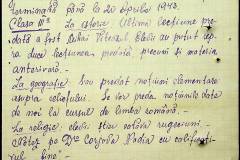 Terminatio până la 20 Aprilie 1943.
Clasa III a La istorie Ultima lecțiune pre-
dată a fost Mihai Viteazul. Elevii au putut repe-
ta duce lecțiunea predată, precum și materia
anterioară.-
La geografie S'au predat noțiuni elementare
asupra reliefului. Se vor preda noțiunile date
de noi la cursul de limba română.
La religie elevii știu câteva rugăciuni.-
Notez pe D-ra Nadia cu califica-
tivul bine